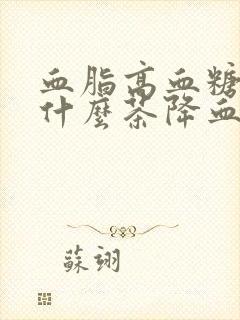 血脂高血糖
什麼茶降血
蘇翊